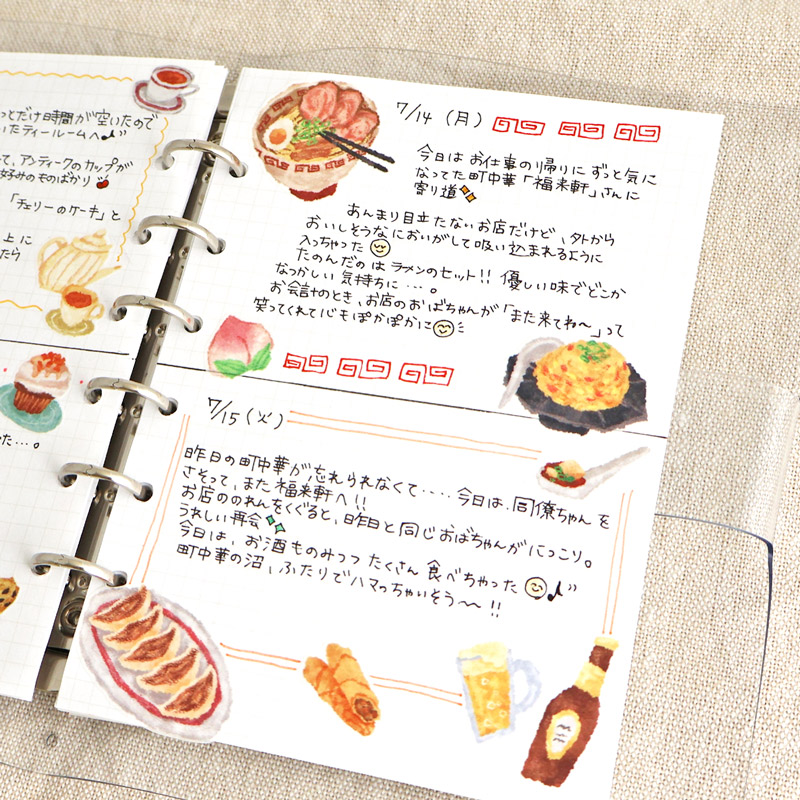 っとだけ時間が空いたので
いたティールームへ♪
て、アンティークのカップが
好みのものばかり
「チェリーのケーキ」と
上に
たら
た…。
7/14 (月)
今日は お仕事の帰りに ずっと気に
なってた町中華「福来軒」さんに
寄り道
あんまり目立たないお店だけど、外から
おいしそうなにおいがして吸い込まれるように
入っちゃった
たのんだのは ラーメンのセット!! 優しい味でどこか
なつかしい 気持ちに…。
お会計のとき、お店のおばちゃんが「また来てね〜」って
笑ってくれて心もぽかぽかに
7/15 (火)
昨日の町中華が忘れられなくて‥‥今日は、同僚ちゃんを
さそって、また 福来軒へ!!
お店ののれんをくぐると、昨日と同じおばちゃんがにっこり。
うれしい再会
今日は、お酒ものみつつ たくさん 食べちゃった♪
町中華の沼、ふたりでハマっちゃいそう〜〜!!